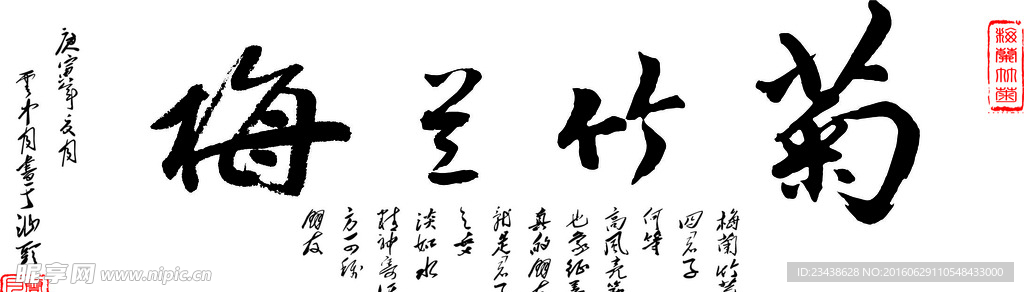 梅兰竹菊
梅蘭竹菊
梅蘭竹菊
四君子
何等
高风亮節
也象征
真的朋友
就是君子
之交
淡如水
精神寄
方可称
朋友
庚寅年夏月
雲中月書于汕頭
昵享网 www.nipic.cn
ID:23438628 NO:20160629110548433000